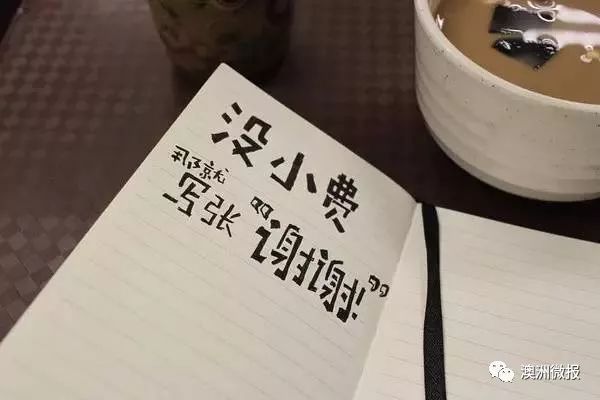 没小费
那就
写张“谢谢”
澳洲微报